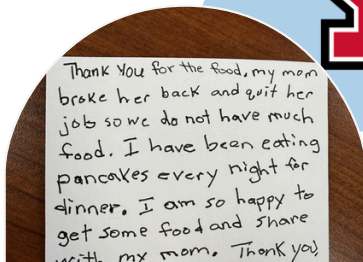 Thank You for the food, my mom
broke her back and quit her
job so we do not have much
food. I have been eating
pancakes every night for
dinner. I am so happy to
get some food and share
with my mom. Thank you,